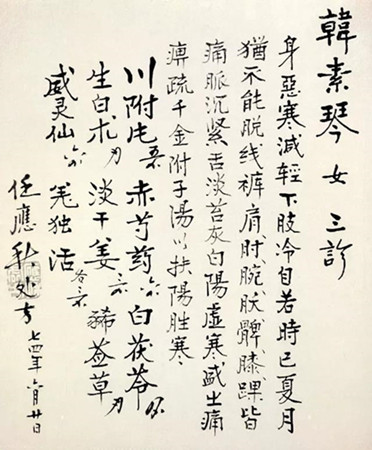 韓素琴女三診
身惡寒減輕下肢冷自若時已夏月
猶不能脱线裤肩肘腕髀膝踝皆
痛脈沉紧舌淡苔灰白陽虚寒盛之痛
痹疏千金附子湯以扶陽胜寒
川附片 赤芍药 白茯苓
生白术 淡干姜 豨莶草
威灵仙 羌独活
任應秋处方 七四年六月廿日